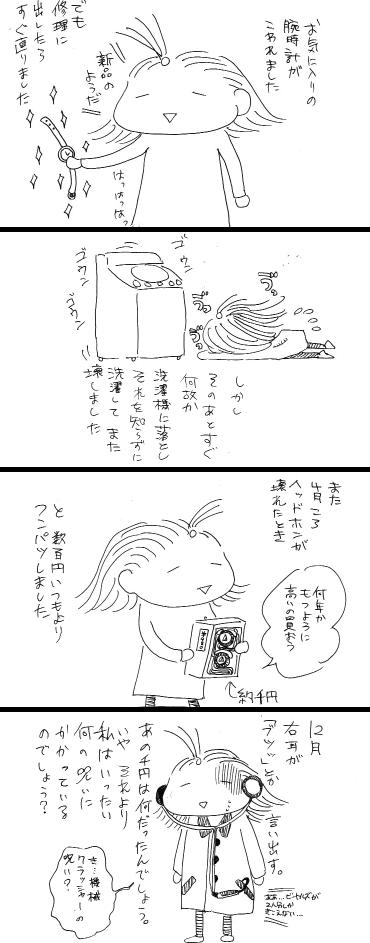 お気に入りの
腕時計が
こわれました
新品の
ようだ
はっはっはっ
でも
修理に
出したら
すぐ直りました
ゴウン
ゴウン
ゴウン
しかし
そのあとすぐ
何故か
洗濯機に落とし
それを知らずに
洗濯して また
壊しました
また
4月ころ
ヘッドホンが
壊れたとき
何年か
もつように
高いの買おう
約千円
と 数百円いつもより
フンパツしました
12月
右耳が
「ブツッ」とか
言い出す。
あの千円は何だったんでしょう。
いや それより
私はいったい
何の呪いに
かかっている
のでしょう?
き…機械
クラッシャーの
呪い?
ああ…ビートルズが
2人分しか
きこえない…